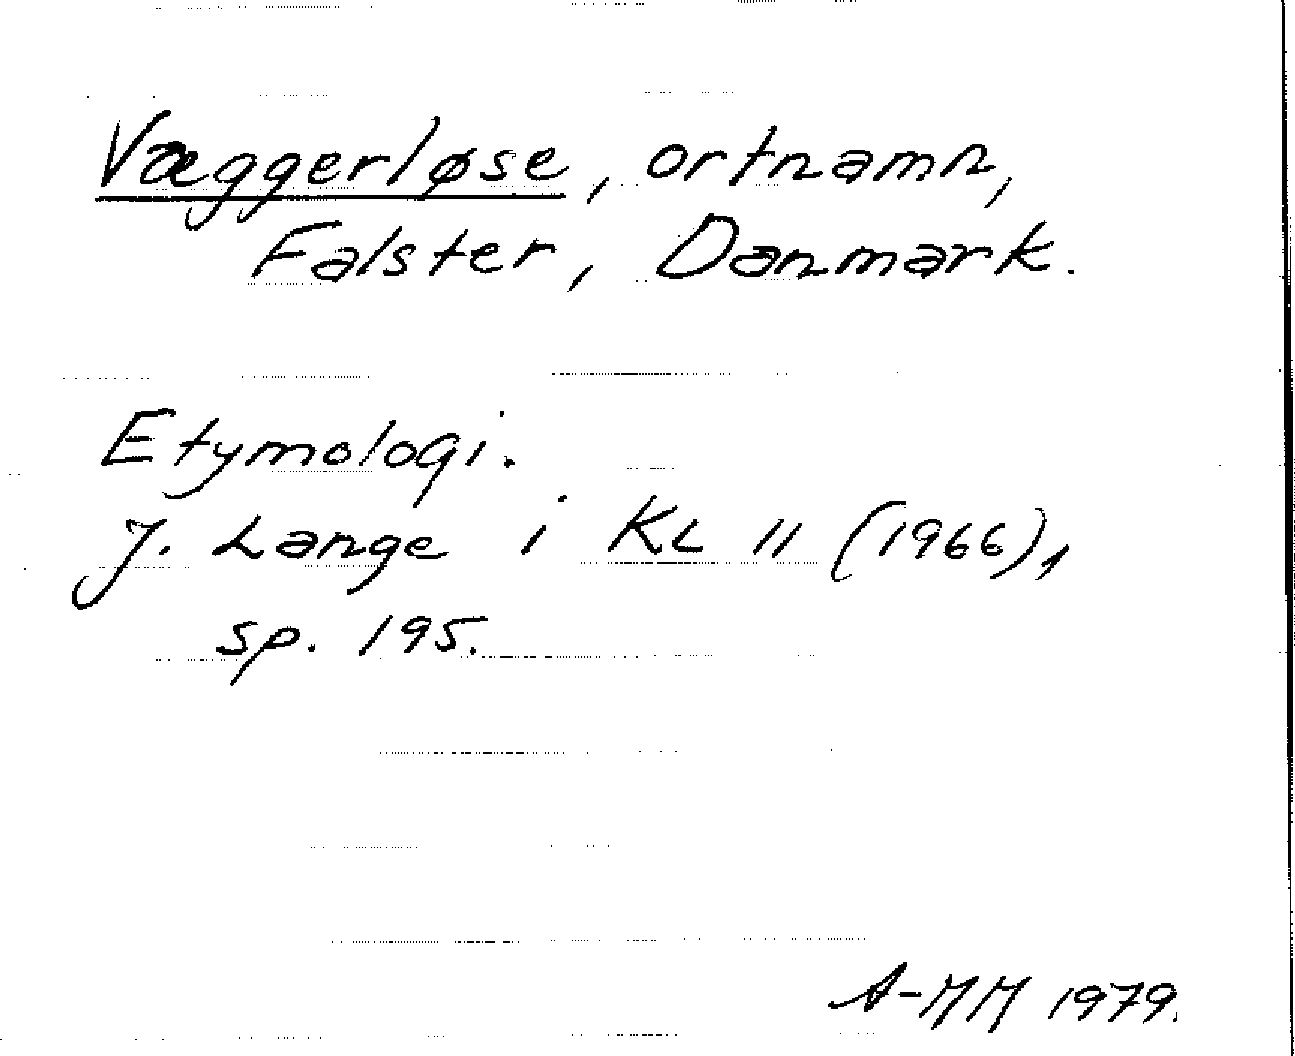 Væggerløse, ortnamn,
Falster, Danmark.
Etymologi.
J. Lange i KL 11 (1966),
sp. 195.
A-MM 1979.